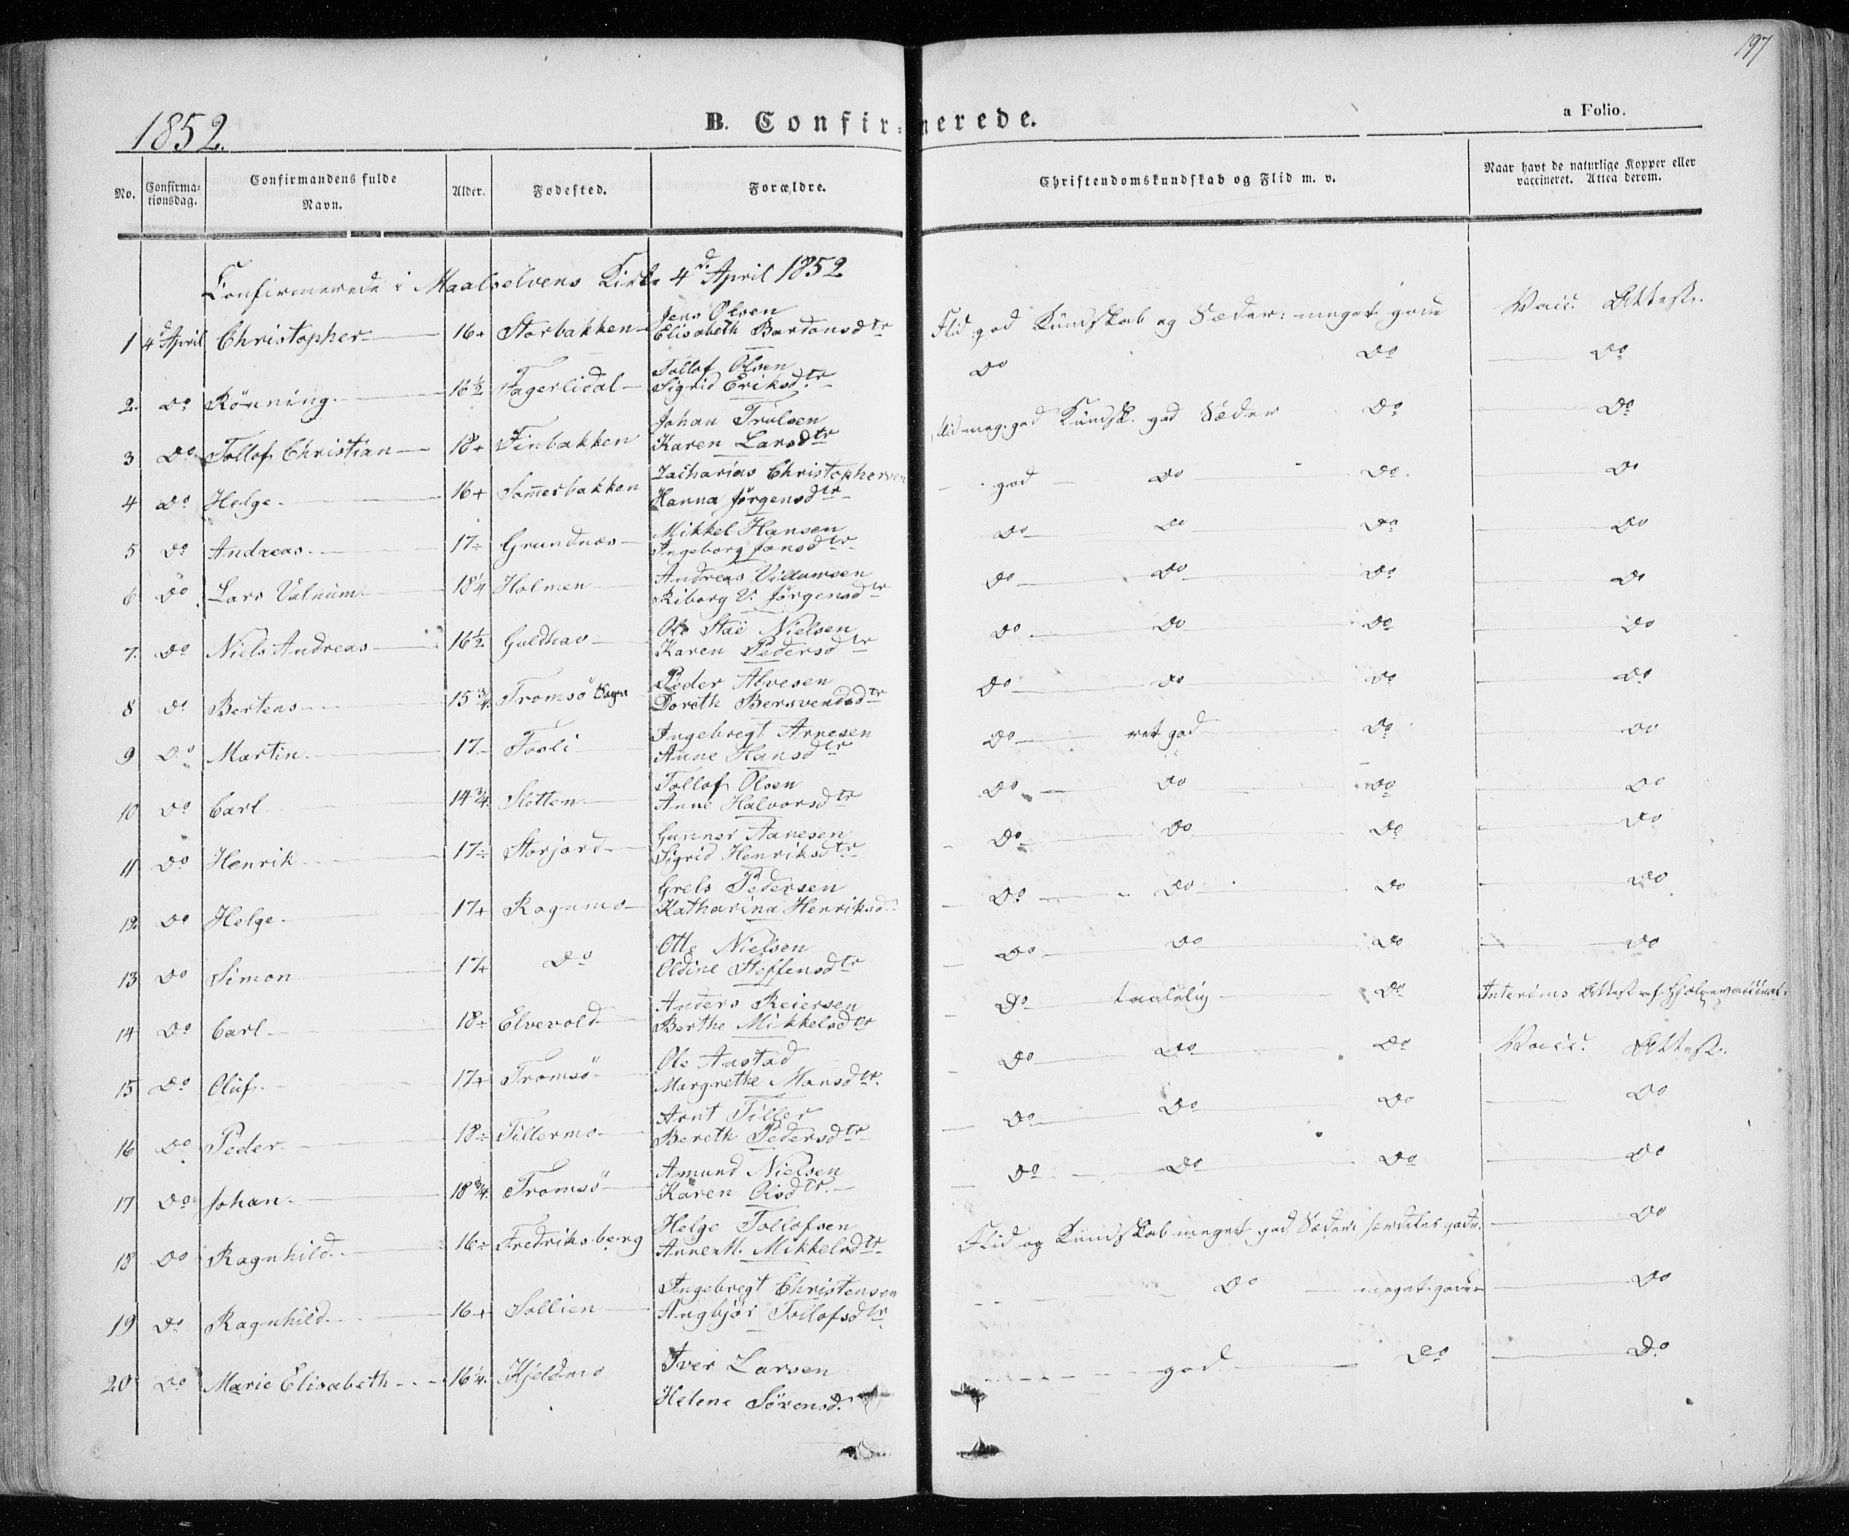 197
1852.
B. Confirmerede.
a Folio.
No. Confirmationsdag. Confirmandens fulde Navn. Alder. Fodested. Forældre. Christendomskundskab og Flid m. v. Naar havt de naturlige Kopper eller vaccineret. Attea derom.
Confirmerede i Maalselvens Kirke 4d April 1852
Jens Olsen
1 4d April Christopher 16+ Storbakken Elisabeth Bardonsdtr Flid god Kundskab og Sæder: meget gode Vacc. Attest.
Tollof Olsen
2. Do Rönning 16½ Fagerlidal Sigrid Eriksdtr Do Do Do
Johan Trulsen
3 Do Tollof Christian 18+ Finbakken Karen Larsdtr Flid meg. god Kundsk. god Sæder Do Do
Zacharias Christophersen
4 Do Helge 16+ Somesbakken Hanna Jørgensdtr god Do Do Do
Mikkel Hansen
5 Do Andreas 17÷ Grundnæs Ingeborg Jonsdtr Do Do Do Do
Andreas Villumsen
6 Do Lars Valnum 18¼ Holmen Riborg V. Jørgensdtr Do Do Do Do
Ole Nielsen
7. Do Niels Andreas 16½ Guldhav Karen Pedersdtr Do Do Do Do
Peder Alvesen
8 Do Bertens 15¾ Tromsö Sogn Doreth Bersvendsdtr Do Do Do Do
Ingebregt Arnesen
9 Do Martin 17 Fosli Anne Hansdtr Do ret god Do Do
Tollof Olsen
10 Do Carl 14¾ Sletten Anne Halvorsdtr Do Do Do Do
Gunner Aanesen
11 Do Henrik 17÷ Storjord Sigrid Henriksdtr Do Do Do Do
Grels Pedersen
12. Do Helge 17+ Rognmo Katharina Henriksd. Do Do Do Do
Otte Nielsen
13 Do Simon 17+ Do Oldine Steffensdtr Do Do Do Do
Anders Reiersen
14 Do Carl 18÷ Elvevold Berthe Mikkelsdtr Do taalelig Do Interims Attest
Ole Aastad
15 Do Oluf 17+ Tromsö Margrethe Monsdtr. Do Do Do Vacc. Attest.
Arnt Tiller
16 Do Peder 18÷ Tillermo Bereth Pedersdtr Do Do Do Do
Amund Nielsen
17 Do Johan 18¾ Tromsö Karen Oisdtr. Do Do Do Do
Helge Tollofsen
18 Do Ragnhild 16÷ Fredriksberg Anne M. Mikkelsdtr Flid og Kundskab meget god Sæder: særdeles gode. Do
Ingebregt Christensen
19 Do Ragnhild 16+ Sollien Angbjør Tollofsdtr Do meget gode Do
Iver Larsen
20 Do Marie Elisabeth 16¼ Kjeldmo god Do Do
Helene Sörensd.